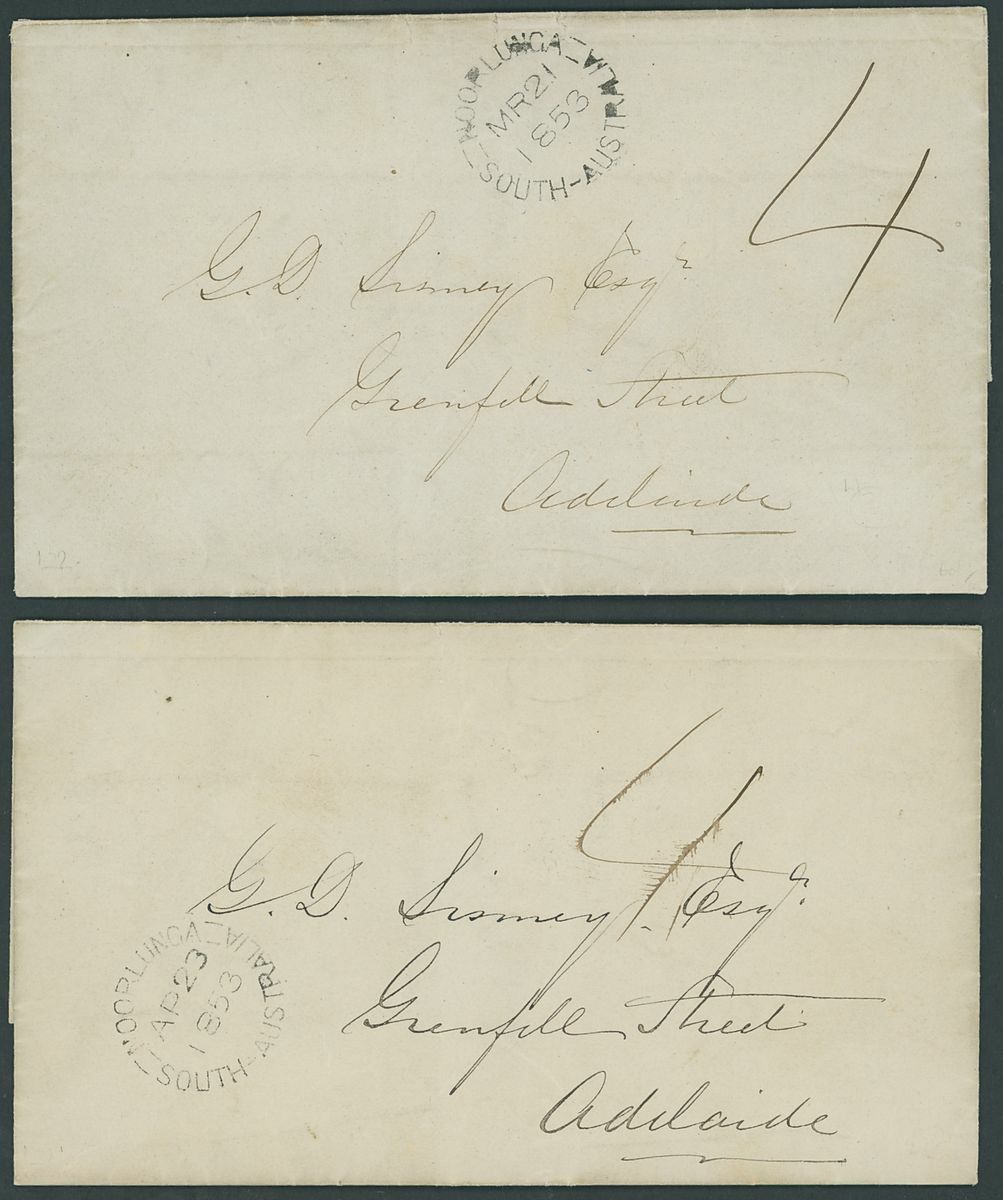 NOORLUNGA - SOUTH-AUSTRALIA
MR 21
1853
4
G. D. Sismey Esqr
Grenfell Street
Adelaide
4
G. D. Sismey Esqr
NOORLUNGA - SOUTH-AUSTRALIA
AP 23
1853
Grenfell Street
Adelaide